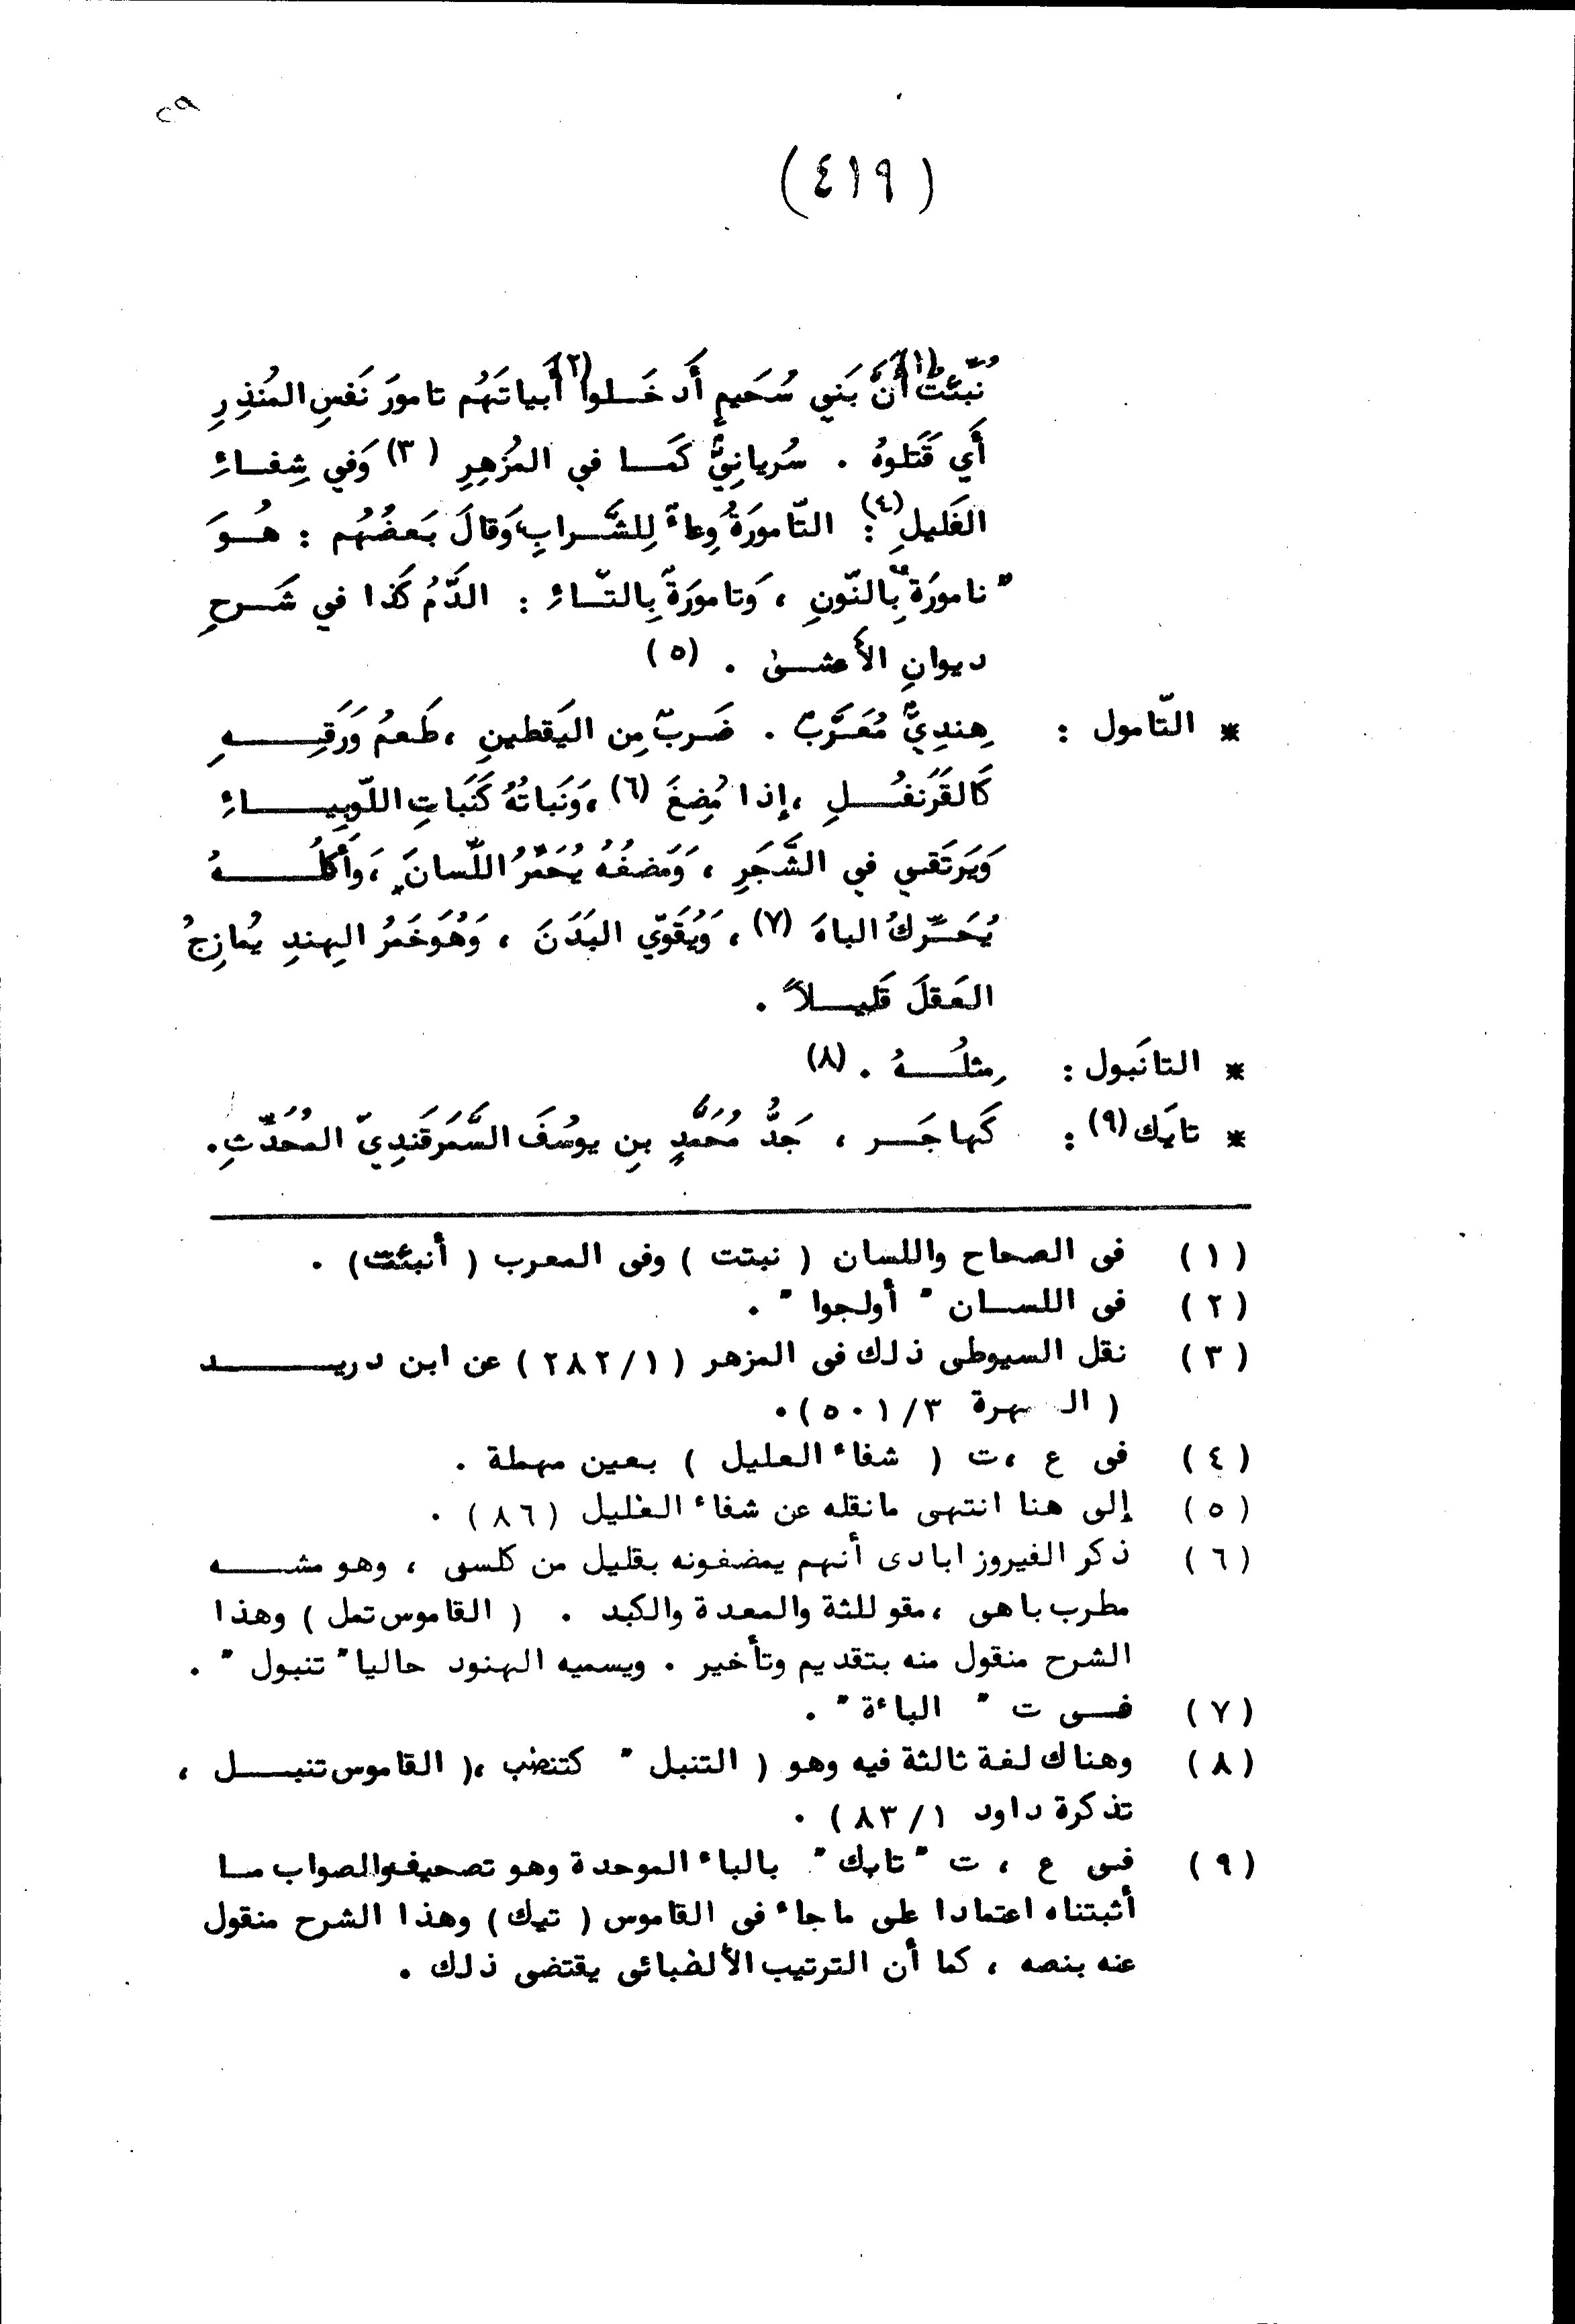 ٢٩
( ٤١٩ )
نُبِّئتُ (١) أَنَّ بَني سُحَيمٍ أَدخَلوا (٢) أَبياتَهُم تامورَ نَفسِ المُنذِرِ
أَي قَتَلوهُ . سُريانِيٌّ كَما في المُزهِرِ (٣) وَفي شِفاءِ
الغَليلِ (٤) : التّامورَةُ وِعاءٌ لِلشَّرابِ، وَقالَ بَعضُهُم : هُوَ
" نامورَة " بِالنّونِ ، وَتامورَةٌ بِالتّاءِ : الدَّمُ كَذا في شَرحِ
ديوانِ الأَعشى . (٥)
* التّامول : هِندِيٌّ مُعَرَّبٌ . ضَربٌ مِن اليَقطينِ ، طَعمُ وَرَقِهِ
كَالقَرَنفُلِ ، إِذا مُضِغَ (٦) ، وَنَباتُهُ كَنَباتِ اللّوبِياءِ
وَيَرتَقي في الشَّجَرِ ، وَمَضغُهُ يُحَمِّرُ اللِّسانَ ، وَأَكلُهُ
يُحَرِّكُ الباهَ (٧) ، وَيُقَوّي البَدَنَ ، وَهُوَ خَمرُ الهِندِ يُمازِجُ
العَقلَ قَليلاً .
* التانَبول : مِثلُهُ . (٨)
* تايَك (٩) : كَهاجَر ، جَدُّ مُحَمَّدٍ بنِ يوسُفَ السَّمَرقَندِيّ المُحَدِّثِ.
(١) فى الصحاح واللسان ( نبتت ) وفى المعرب ( أنبئت) .
(٢) فى اللسان " أولجوا " .
(٣) نقل السيوطى ذلك فى المزهر ( ١/ ٢٨٢ ) عن ابن دريد
( الـ ـهرة ٣/ ٥٠١) .
(٤) فى ع ، ت ( شفاء العليل ) بعين مهملة .
(٥) إلى هنا انتهى مانقله عن شفاء الغليل ( ٨٦ ) .
(٦) ذكر الفيروز ابادى أنهم يمضغونه بقليل من كلسى ، وهو مشه
مطرب باهى ، مقو للثة والمعدة والكبد . ( القاموس تمل ) وهذا
الشرح منقول منه بتقديم وتأخير . ويسميه الهنود حاليا " تنبول " .
(٧) فى ت " الباءة " .
(٨) وهناك لغة ثالثة فيه وهو ( التنبل " كتنضب ،( القاموس تنبل ،
تذكرة داود ١/ ٨٣ ) .
(٩) فى ع ، ت " تابك " بالباء الموحدة وهو تصحيف والصواب ما
أثبتناه اعتمادا على ماجاء فى القاموس ( تيك ) وهذا الشرح منقول
عنه بنصه ، كما أن الترتيب الألفبائى يقتضى ذلك .